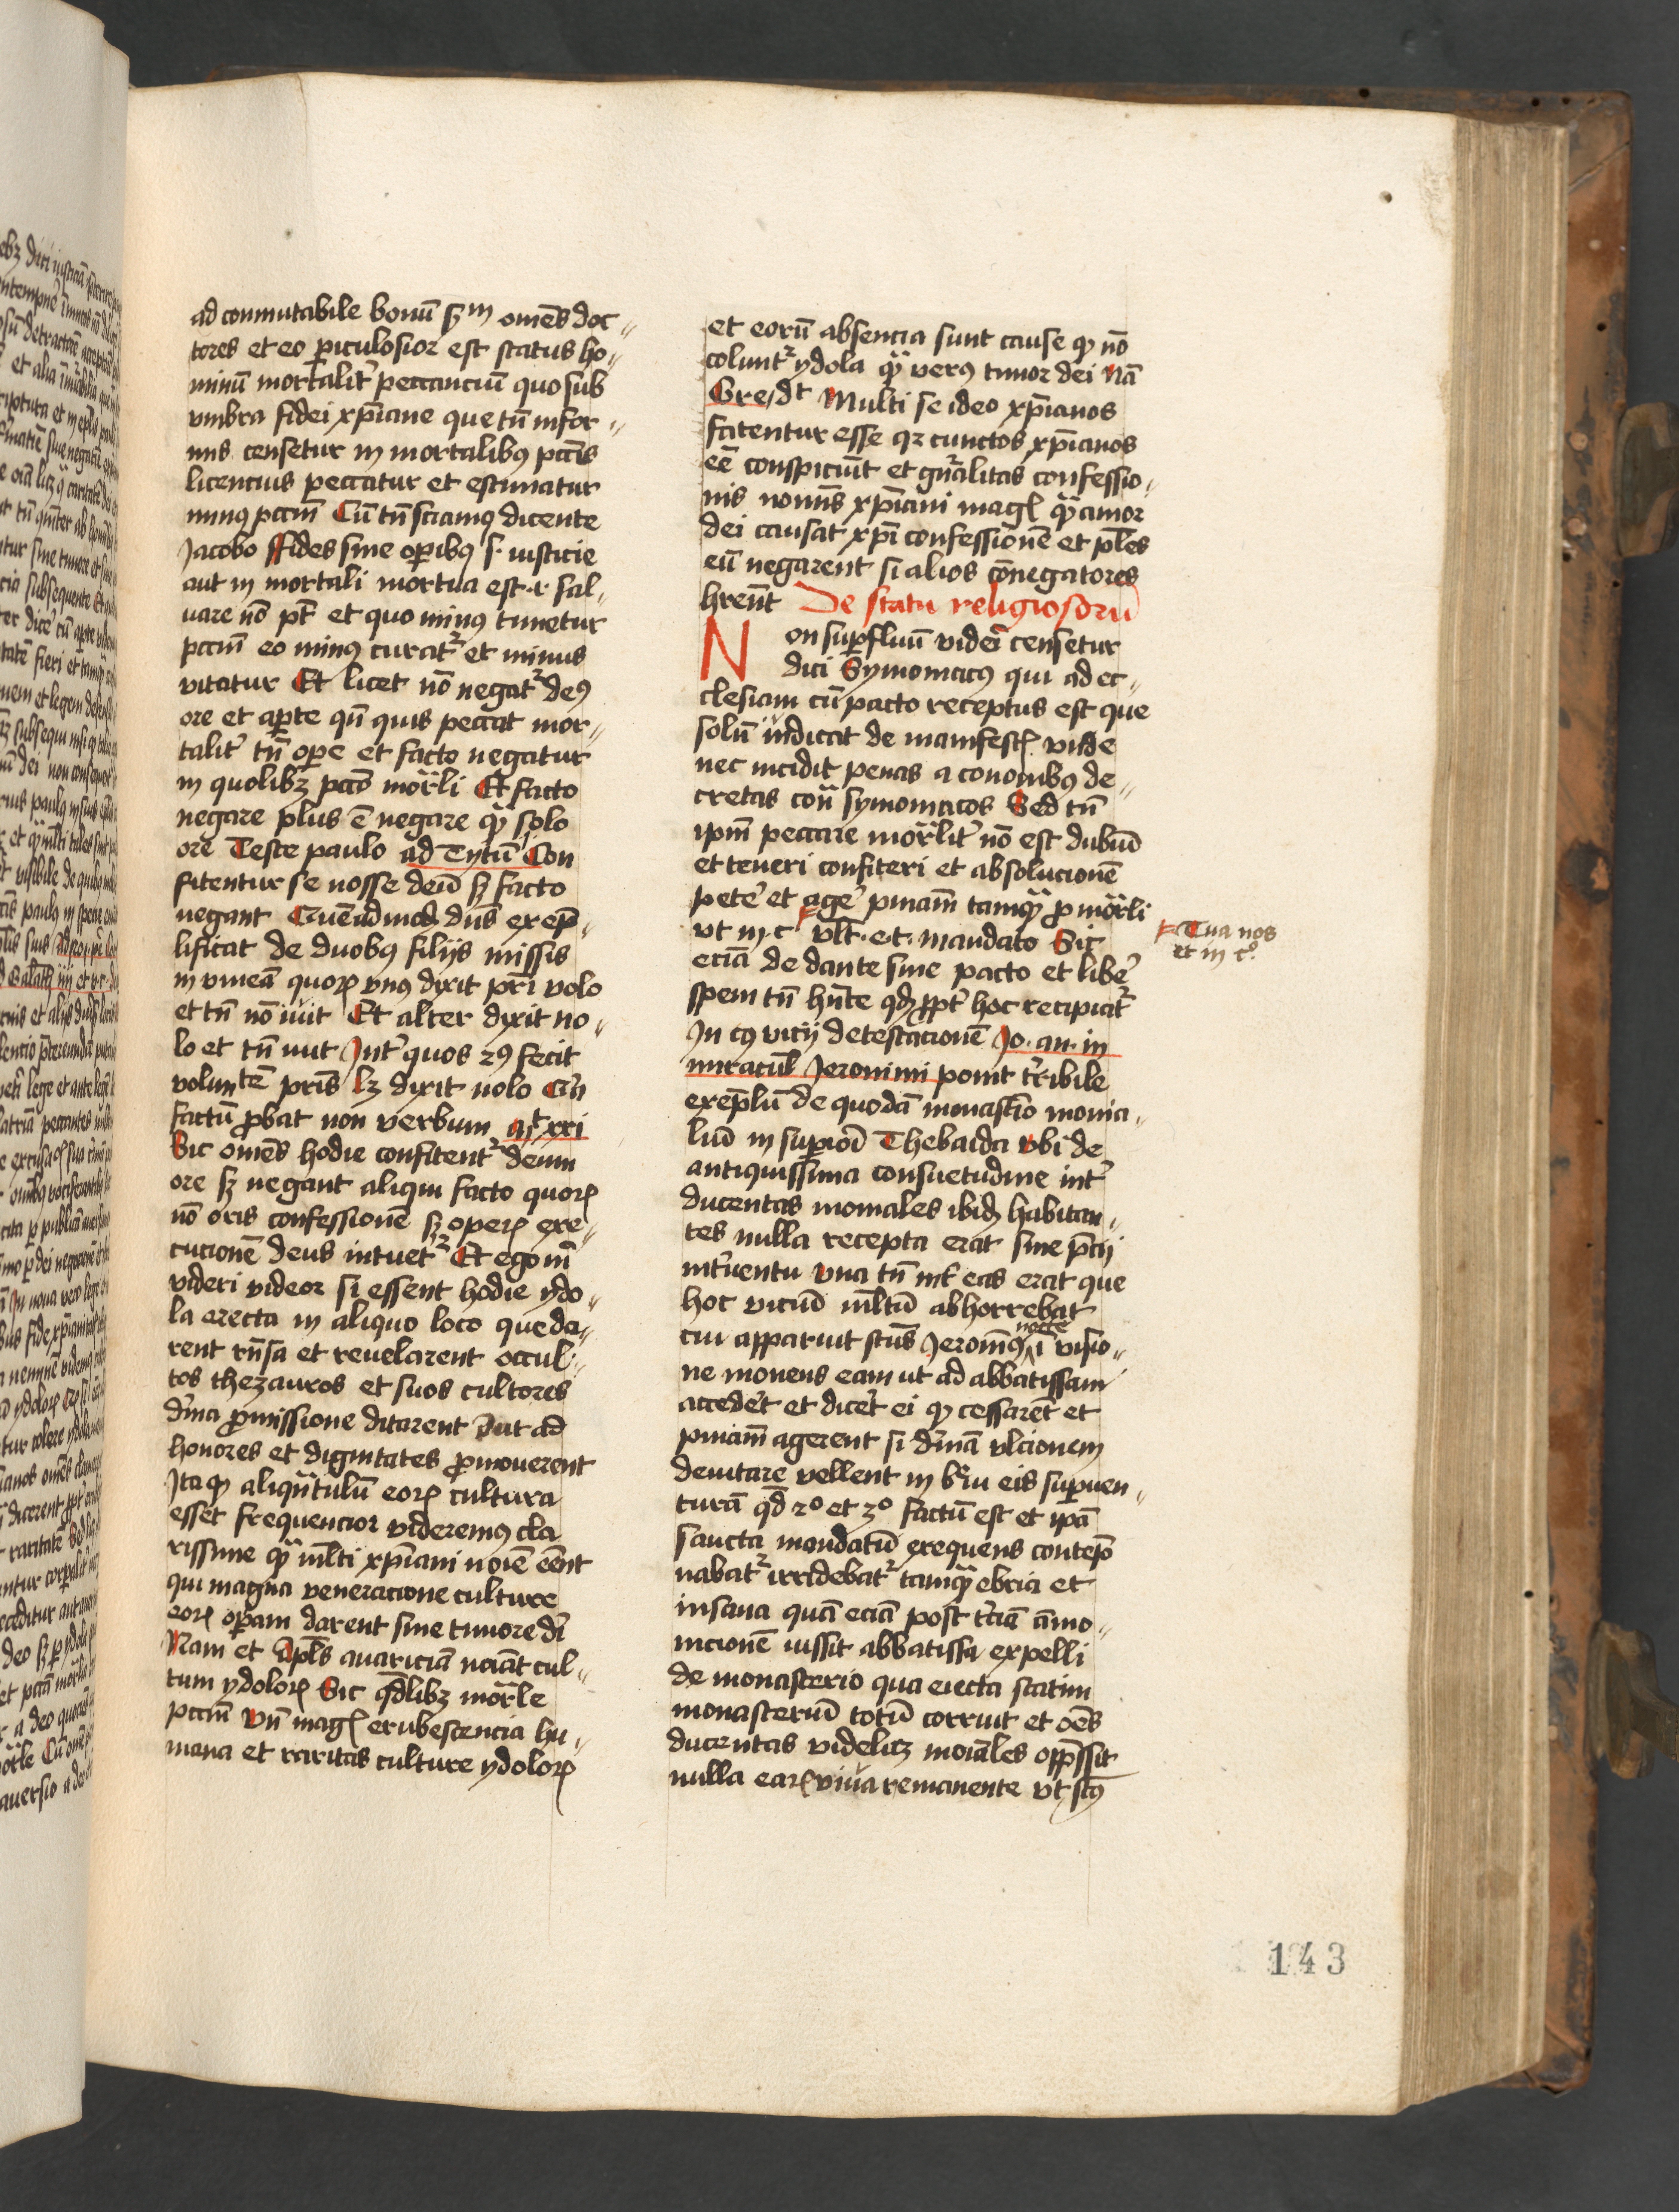 ad conmutabile bonū sꝫm omēs doc„
tores et eo ꝑiculosior est status ho„
minū mortalit̄ peccanciū quo sub
vmbra fidei xp̄iane que tn̄ infor„
mis censetur in mortalibꝰ pctīs
licencius peccatur et estimatur
minꝰ pctm̄ Cū tn̄ sciamꝰ dicente
Jacobo ffides sine oꝑibꝰ s· iusticie
aut in mortali mortua est ·r· sal„
uare nō pt̄ et quo minꝰ timetur
pctm̄ eo minꝰ curat᷑ et minus
vitatur Et licet nō negat᷑ deꝰ
ore et aꝑte qn̄ quis peccat mor„
talit̄ tn̄ oꝑe et facto negatur
in quolibꝫ pctō mor̄li Et facto
negare plus ē negare qꝫ̄ solo
ore Teste paulo ad Tytū Con
fitentur se nosse deū sꝫ facto
negant Quēadmodꝫ dn̄s exep̄„
lificat de duobꝰ filijs missis
in vineā quoꝝ vnꝰ dixit pr̄i volo
et tn̄ nō iuit Et alter dixit no„
lo et tn̄ iuit Int̄ quos 2ꝰ fecit
volunt̄ē pr̄is lꝫ dixit nolo Qn̄
factū ꝓbat non verbum at xxi
Sic omēs hodie confitent᷑ deum
ore sꝫ negant aliqui facto quoꝝ
nō oris confessionē sꝫ operꝝ exe„
cucionē deus intuet᷑ Et ego m̄
videri videor si essent hodie ydo„
la erecta in aliquo loco que da„
rent rn̄sa et reuelarent occul„
tos thezauros et suos cultores
diuina ꝓmissione ditarent aut ad
honores et dignitates ꝓmouerent
Ita ꝙ aliqn̄tulū eoꝝ cultura
esset frequencior videremꝰ cla
rissime qꝫ̄ ml̄ti xp̄iani noīe eēnt
qui magna veneracione culture
eoꝝ oꝑam darent sine timore dī
Nam et Apl̄s auariciā nōiat cul„
tum ydoloꝝ Sic qd̄libꝫ mor̄le
pctm̄ Vn̄ magꝭ erubescencia hu„
mana et raritas culture ydoloꝝ
et eorū absencia sunt cause ꝙ nō
colunt᷑ ydola qꝫ̄ verꝰ timor dei Nā
Gre· dt̄ Multi se ideo xp̄ianos
fatentur esse qꝛ cunctos xp̄ianos
eē conspiciūt et gn̄ralitas confessio„
nis nomīs xp̄iani magꝭ qꝫ̄ amor
dei causat xp̄i confessionē et pl̄es
eū negarent si alios cōnegatores
hrēnt De statu religiosorū
Non suꝑfluū videri censetur
dici Symoniacꝰ qui ad ec„
clesiam cū pacto receptus est que
solū iudicat de manifestꝭ vnde
nec incidit penas a cononibꝰ de„
cretas con̄ symoniacos Sed tn̄
ipm̄ peccare mor̄lit̄ nō est dubiū
et teneri confiteri et absolucionē
pete̛ et age̛ pn̄iam tamqꝫ̄ ꝓ mor̄li
vt in c vlt· e·t· mandato Sic
eciā de dante sine pacto et libe̛
spem tn̄ hn̄te qd̄ ꝓpt̄ hoc recipiat᷑
In cꝰ vicij detestacionē Jo· an· in
miracul̄ Jeronimi ponit t̄ribile
exeplū de quodā monast̄io monia„
liū in suꝑiori Thebaida vbi de
antiquissima consuetudine int̄
ducentas moniales ibidꝫ habitan„
tes nulla recepta erat sine p̄cij
int̄uentu vna tn̄ int̄ eas erat que
hoc viciū ml̄tū abhorrebat
nocte
cui apparuit scūs Jeronimꝰ ī visio„
ne monens eam ut ad abbatissam
accedēt et dicēt ei ꝙ cessarēt et
pn̄iam agerent si diuinā vlcionem
deuitare vellent in breui eis suꝑuen„
turā qd̄ 2º et 3º factū est et ipā
sancta mandatū exequens contēp
nabat᷑ irridebat᷑ tamqꝫ̄ ebria et
insana quā eciā post t̄ciā āmo„
nicionē iussit abbatissa expelli
de monasterio qua eiecta statim
monasteriū totū corruit et oēs
ducentas videlicꝫ moīales opp̄ssit
nulla earꝝ viua remanente vt scūs
Tua nos
et in cº
143